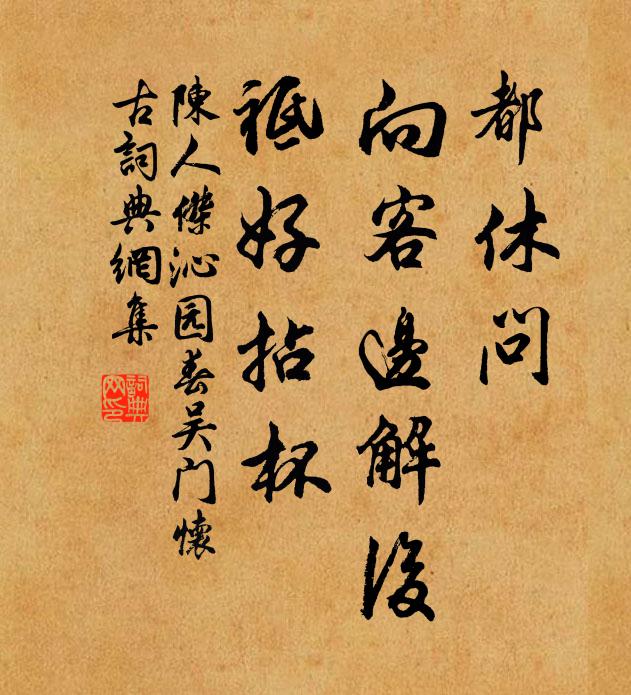 都休问
向客邊解後
祗好拈杯
陳人傑沁园春吴门懷
古詞典網集
詞典网印